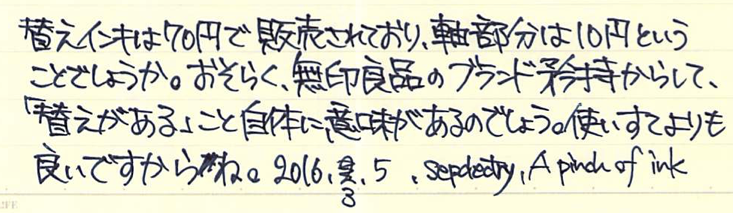 替えインキは70円で販売されており、軸部分は10円という
ことでしょうか。おそらく、無印良品のブランド矜持からして、
「替えがある」こと自体に、意味があるのでしょう。使いすてよりも
良いですからね。2016. . 5 , A pinch of ink
3